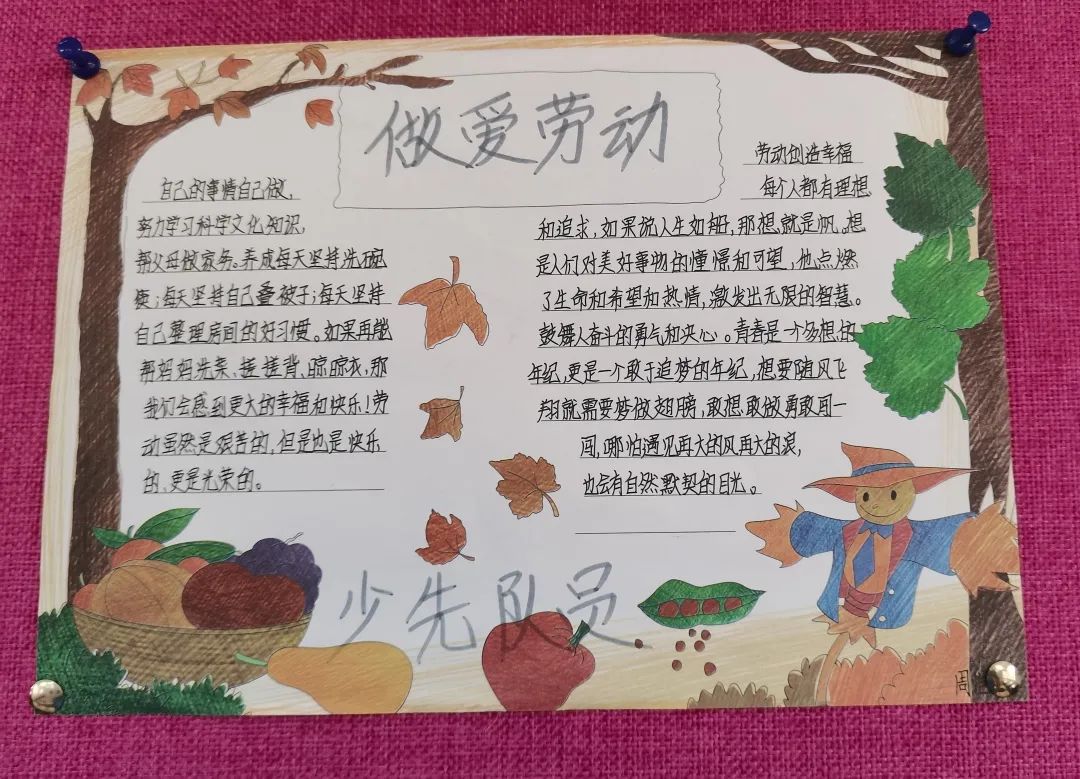 做爱劳动
自己的事情自己做,
努力学习科学文化知识,
帮父母做家务。养成每天坚持洗碗
筷;每天坚持自己叠被子;每天坚持
自己整理房间的好习惯。如果再能
帮妈妈洗菜、搓搓背、晾晾衣,那
我们会感到更大的幸福和快乐!劳
动虽然是艰苦的,但是也是快乐
的、更是光荣的。
劳动创造幸福
每个人都有理想
和追求,如果说人生如船,那想就是帆,想
是人们对美好事物的憧憬和可望,他点燃
了生命和希望和热情,激发出无限的智慧。
鼓舞人奋斗的勇气和决心。青春是一个多想的
年纪,更是一个敢于追梦的年纪,想要随风飞
翔就需要梦做翅膀,敢想敢做勇敢闯一
闯,哪怕遇见再大的风再大的浪,
也会有自然默契的目光。
少先队员
周